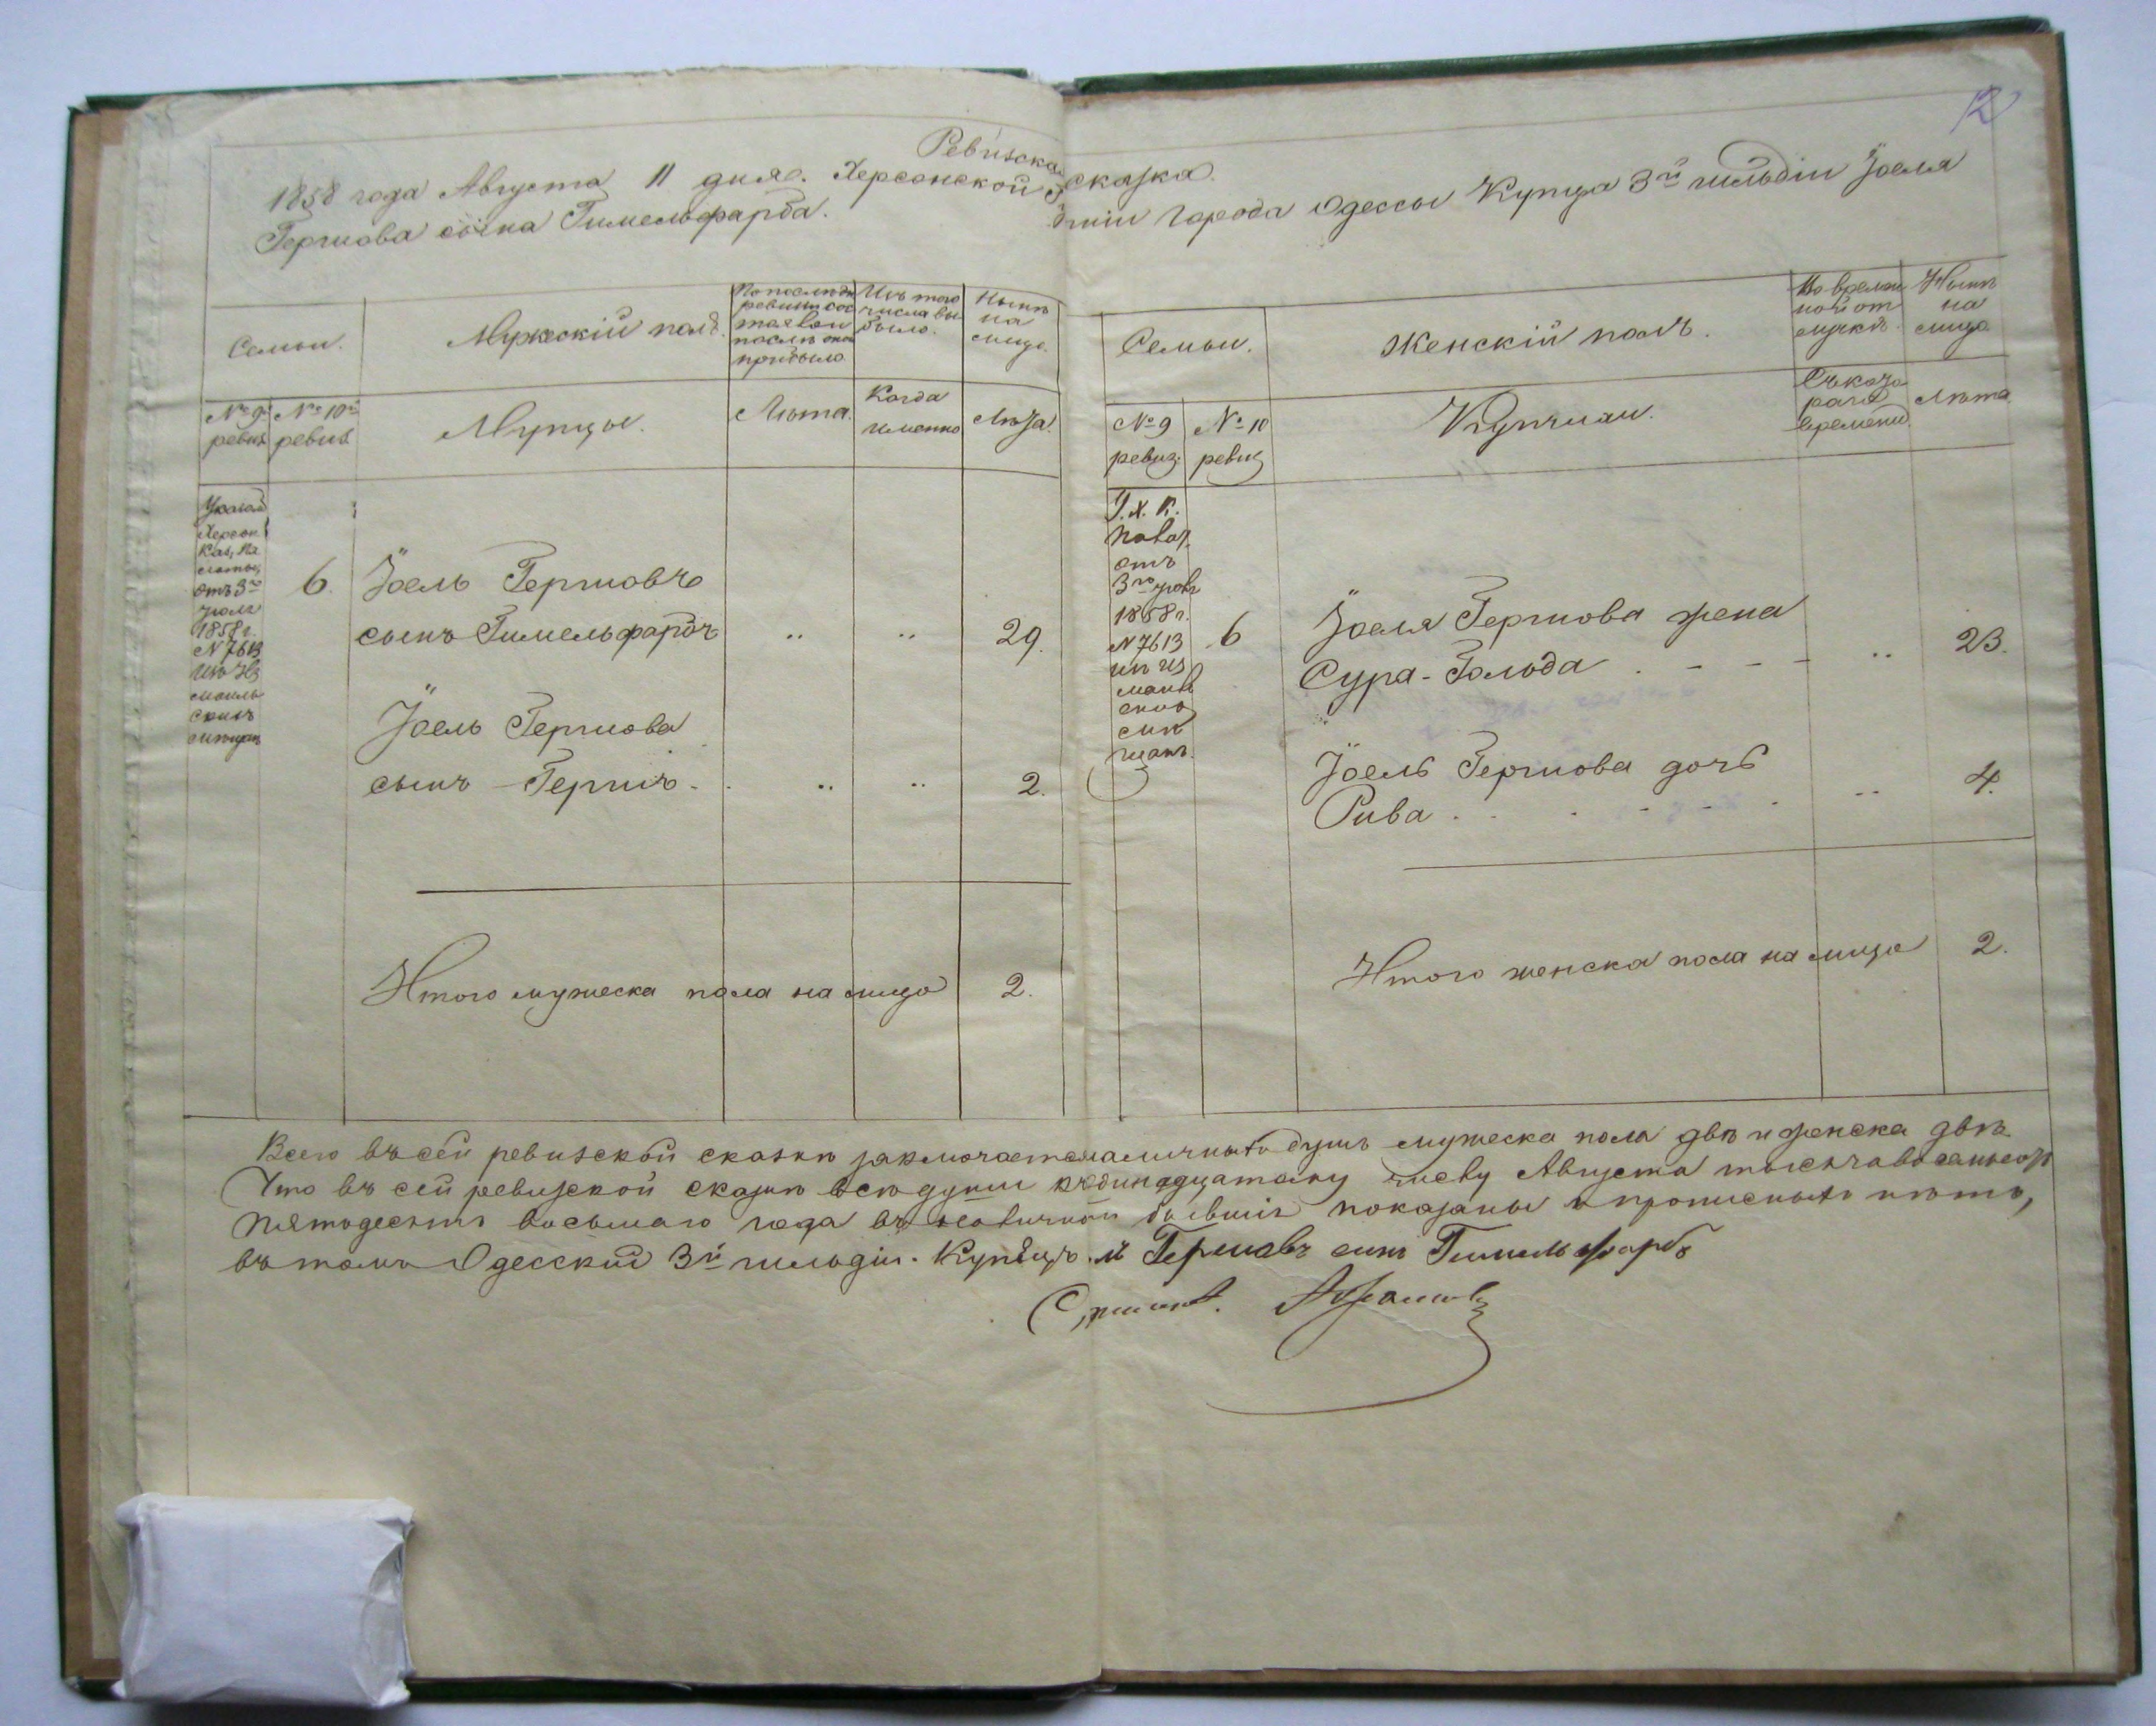 12
Ревизская сказка.
1858 года Августа 11 дня. Херсонской Губерніи Города Одессы Купца 3й гильдіи Іоеля
Гершова сына Гимельфарба.
Семьи.
Мужескій полъ.
По послѣдн
ревизіи сос
тоял или
послѣ оной
прибыло
Изъ того
числа вы
было.
Нынѣ
на
лицо.
№ 9й
ревиз
№ 10й
ревиз
Купцы.
Лѣта.
Когда
именно
Лѣта.
Указ
Херсон.
Каз, Па
латы,
отъ 3го
Іюля
1858 г.
№ 7613
изъ Из
маиль
скихъ
мѣщанъ
6.
Іоель Гершовъ
сынъ Гимельфарбъ
29.
Іоель Гершова
сынъ - Гершъ
2.
Итого мужеска пола на лицо 2.
Семьи.
Женскій полъ.
Во времен
ной от
лучкѣ.
Нынѣ
на
лицо
№ 9
ревиз.
№ 10
ревиз
Купчихи.
Съ кото
раго
времени.
Лѣта.
У. Х. К.
Палат.
отъ
3го Іюля
1858 г.
№ 7613
изъ Из
маиль
скихъ
мѣ
щанъ.
6
Іоеля Гершова жена
Сура - Гольда
23.
Іоель Гершова дочь
Рива
4.
Итого женска пола на лицо 2.
Всего въ сей ревизской сказкѣ заключается наличныхъ душъ мужеска пола двѣ и женска двѣ
Что въ сей ревизской сказкѣ всѣ души къ одинадцатому числу Августа тысяча восемьсот
пятьдесятъ восьмаго года въ наличной бывшіе показаны и прописныхъ нѣтъ,
въ томъ Одесскій 3й гильдіи Купецъ Гершовъ сынъ Гимельфарбъ